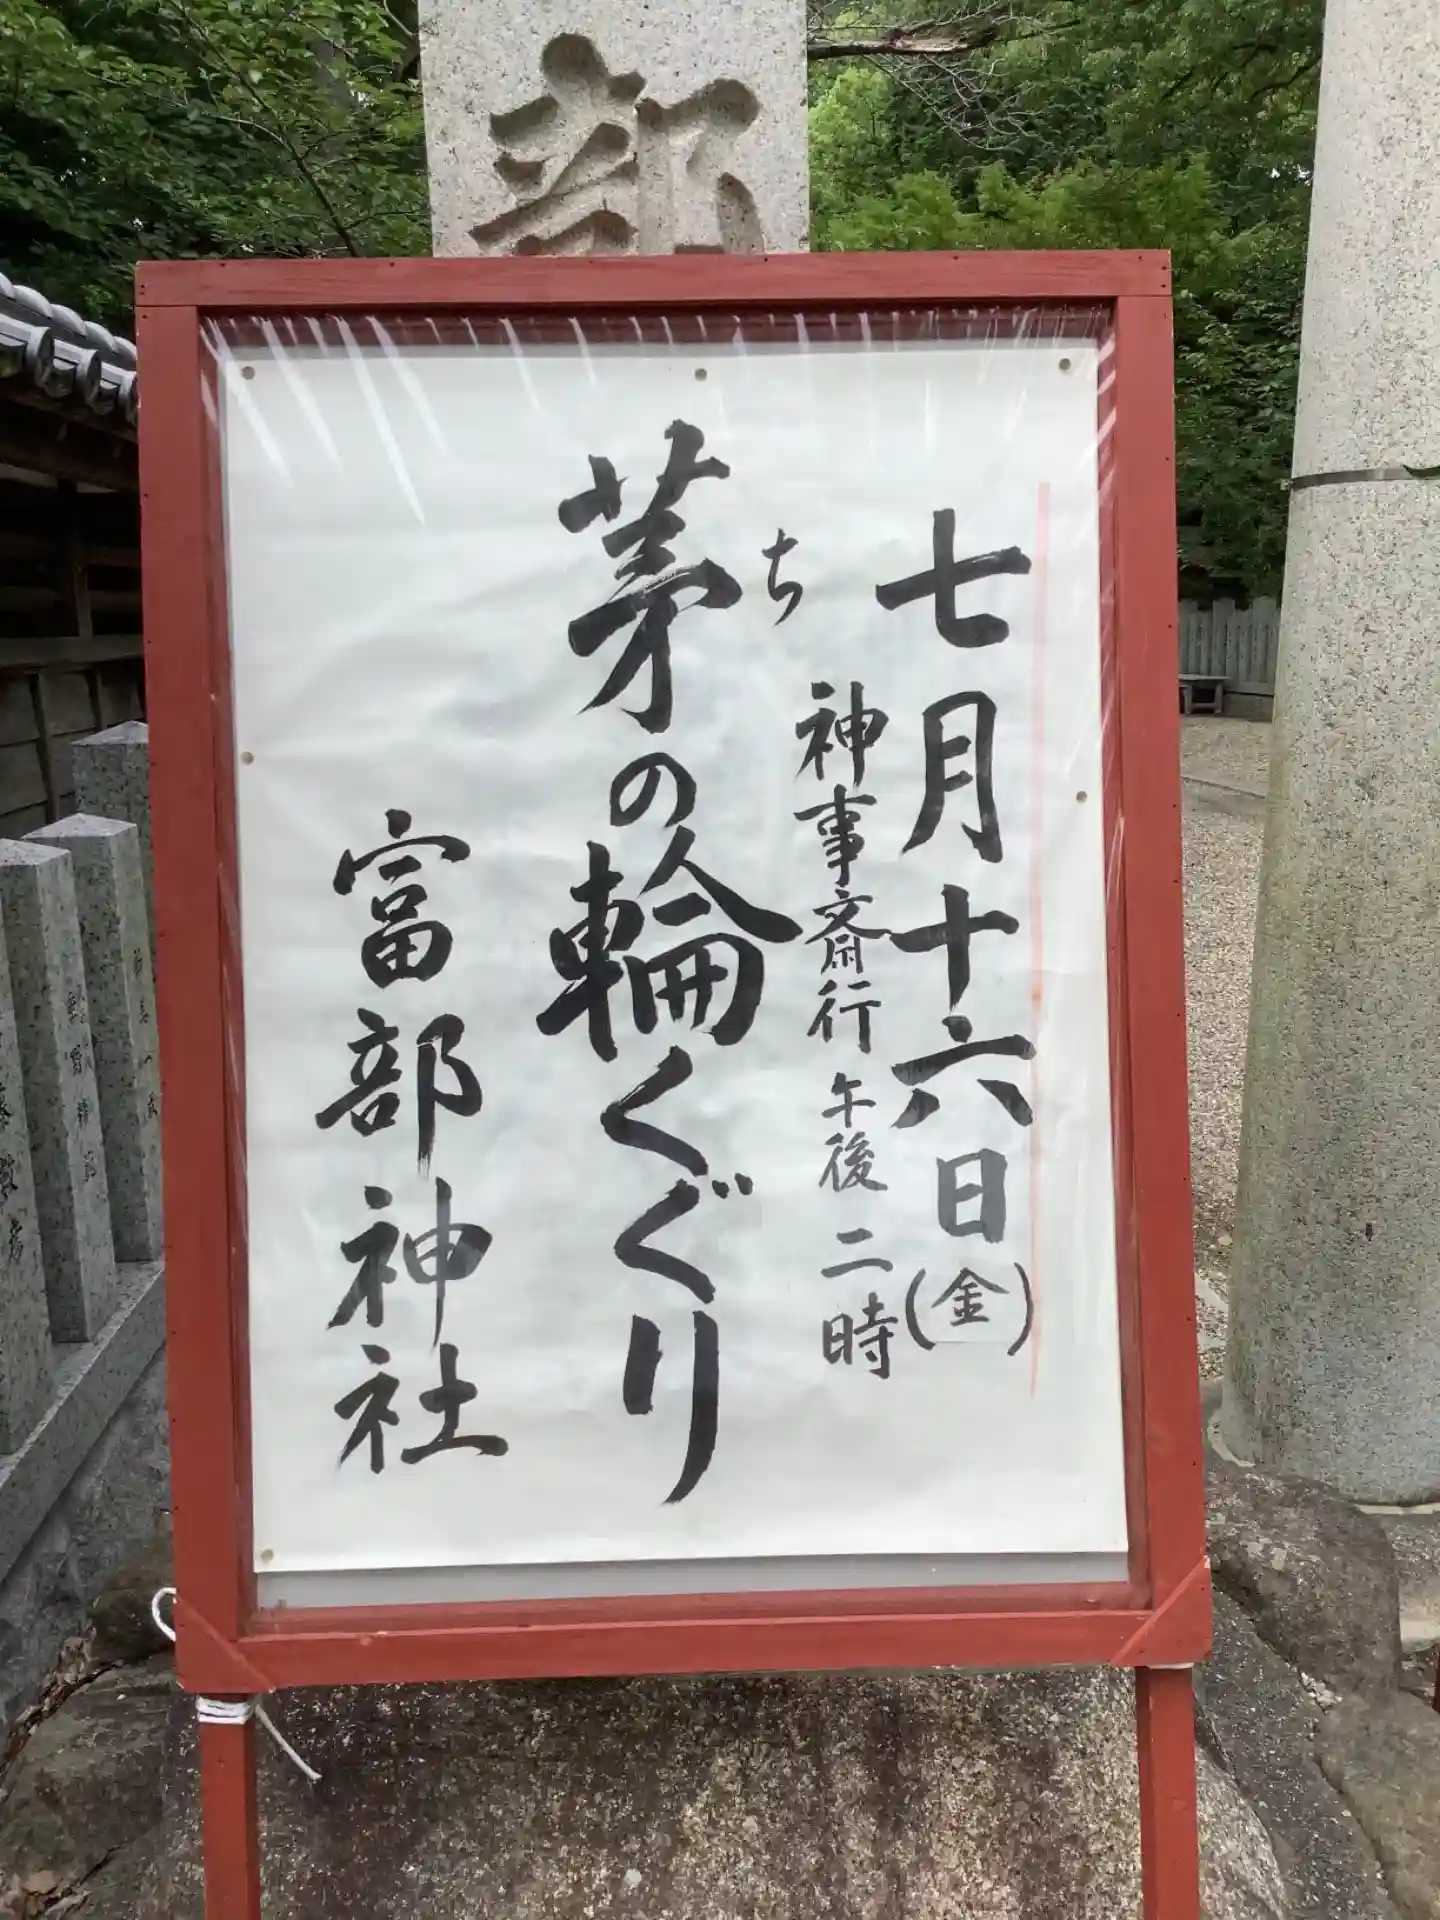 部
七月十六日(金)
神事斎行 午後二時
ち
茅の輪くぐり
富部神社